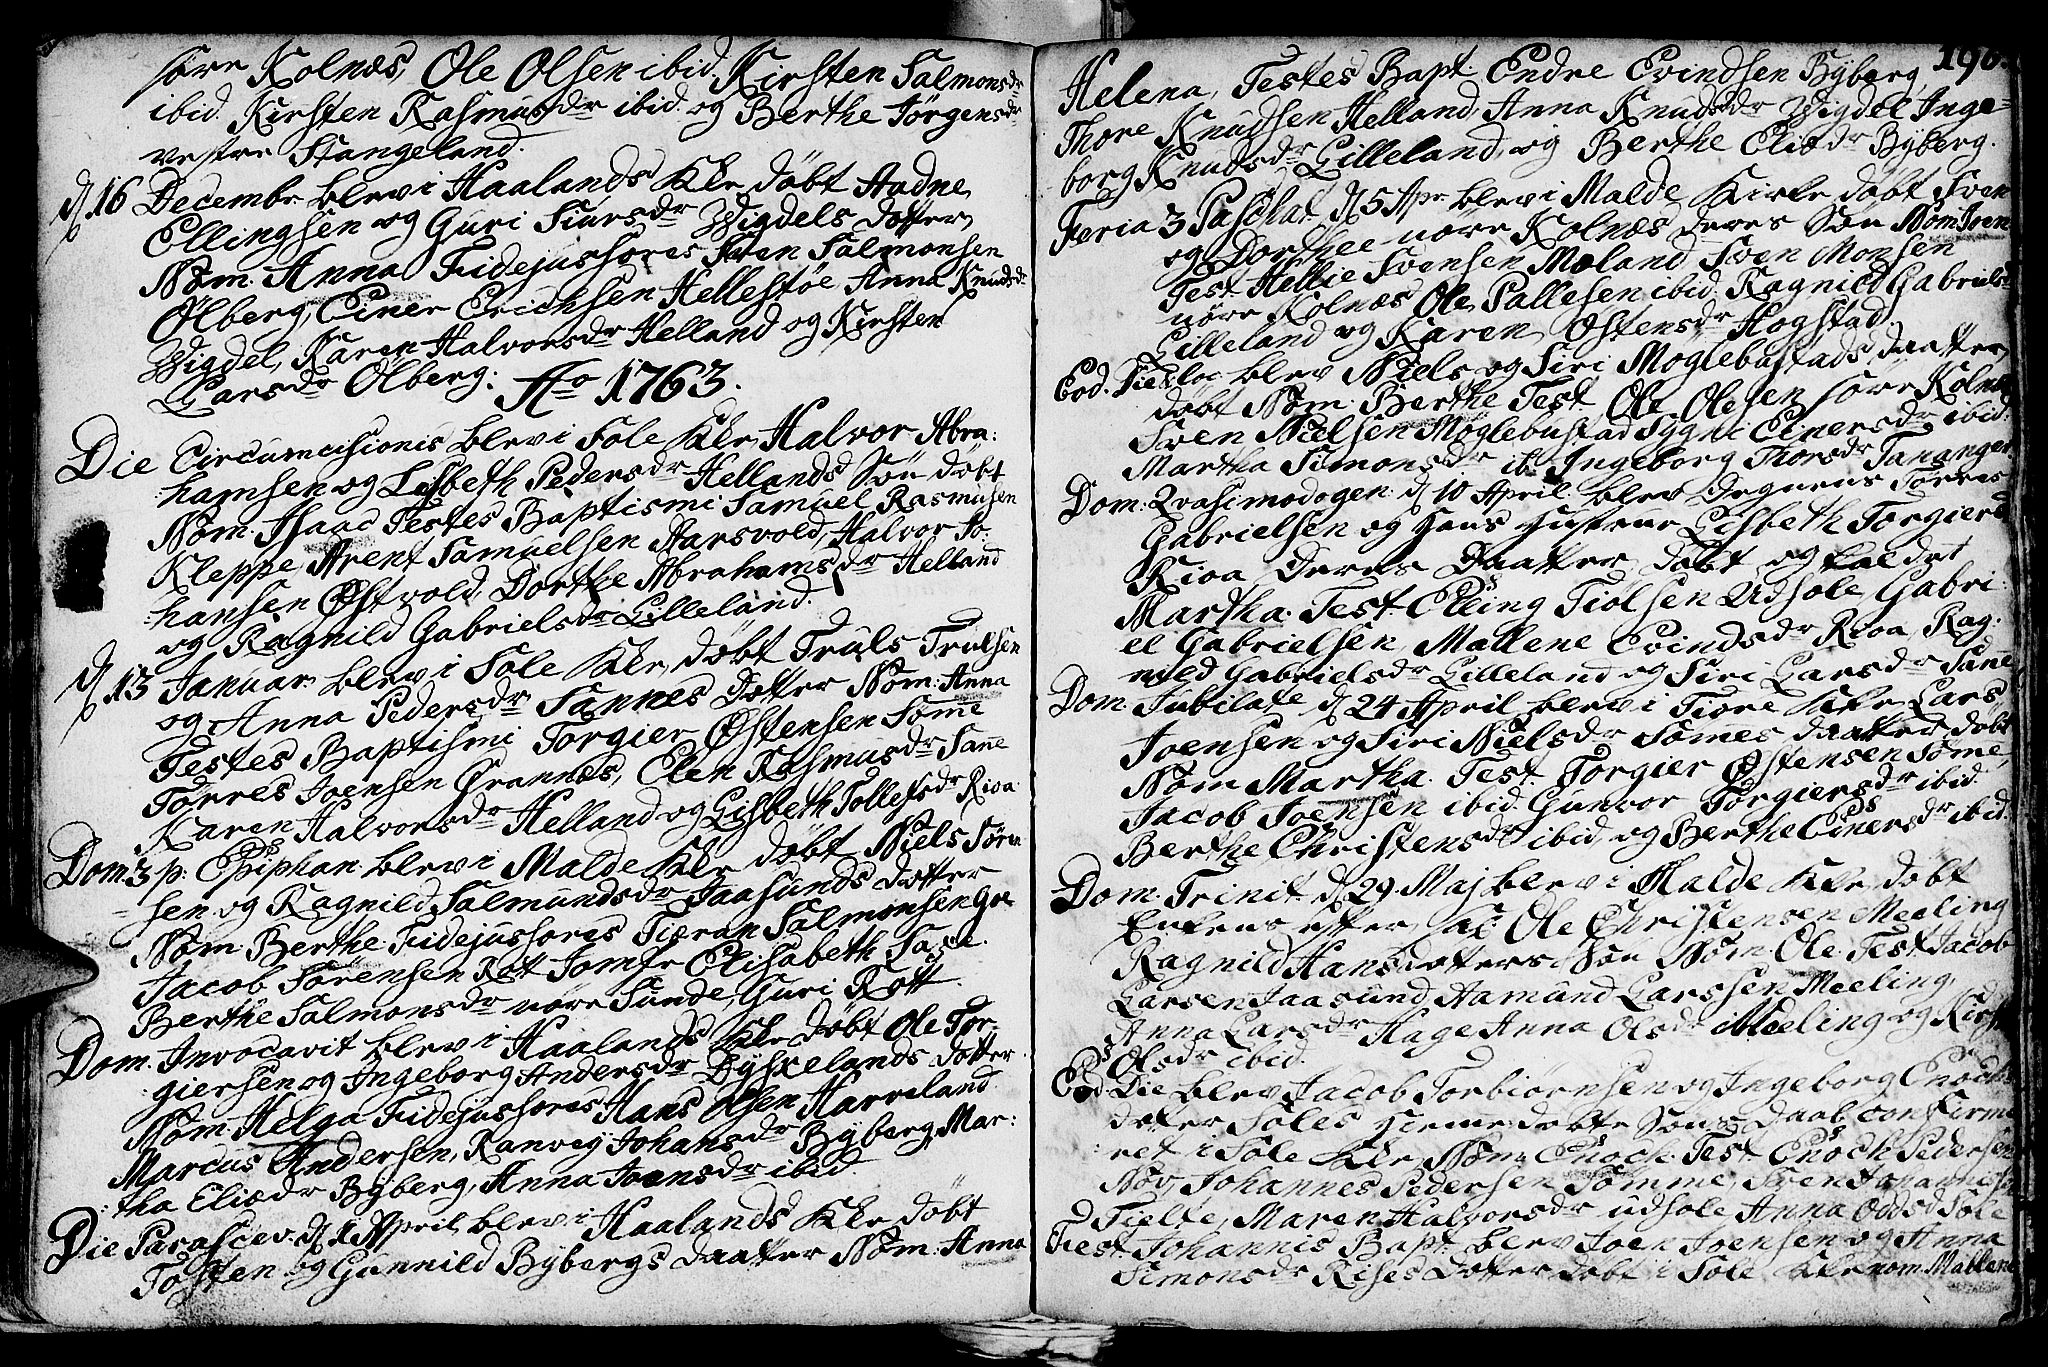 søre Kolnæs, Ole Olsen ibid. Kirsten Salmonsdr
ibid. Kirsten Rasmusdr ibid. og Berthe Jørgensdr
vestre Stangeland.
d 16 Decembr blev i Haalands Kke døbt Aadne
Ellingsen og Guri Siursdr Vigdels dotter
Nom. Anna Fidejussores Sven Salmonsen
Ølberg, Einer Erichsen Hellestøe Anna Knudsdr
Vigdel, Karen Halvorsdr Helland og Kirsten
Larsdr Ølberg.
Ao 1763.
Die Circumcisionis blev i Sole Kke Halvor Abra:
:hamsen og Lisbeth Pedersdr Hellands Søn døbt
Nom. Isaac Testes Baptismi Samuel Rasmusen
Kleppe, Arent Samuelsen Aarsvold, Halvor Jo:
:hansen Østvold, Dorthe Abrahamsdr Helland
og Ragnild Gabrielsdr Lilleland.
d 13 Januar blev i Sole Kke døbt Truls Trulsen
og Anna Pedersdr Sannes Dotter Nom. Anna
Testes Baptismi Torgier Østensen Sømme
Tørres Joensen Grannæs, Elen Rasmusdr Sane
Karen Halvorsdr Helland og Lisbeth Tollefsdr Rioa
Dom. 3 p. Epiphan. blev i Malde Kke døbt Niels Søren
=sen og Ragnild Salmundsdr Jaasunds dotter
Nom. Berthe Fidejussores Tiæran Salmonsen
Jacob Sørensen Røt Jomfr Elisabeth
Berthe Salmonsdr nøre Sunde, Guri Røtt.
Dom. Invocavit blev i Haalands Kke døbt Ole Tor-
giersen og Ingeborg Andersdr Dysjelands dotter.
Nom. Helga Fidejussores Hans Olsen Harveland
Marcus Andersen, Ranveig Johansdr Byberg, Mar:
:tha Eliædr Byberg, Anna Joensdr ibid
Die Parascev. d 1 April blev i Haalands Kke døbt
Tosten og Gunnild Bybergs daatter Nom: Anna
196.
Helena, Testes Bapt: Endre Evindsen Byberg
Thore Knudsen Helland, Anna Knudsdr Vigdel Inge=
borg Knudsdr Lilleland, og Berthe Eliædr Byberg.
Feria 3 Paschat. d 5 Apr. blev i Malde Kirke døbt Sven
og Dorthee nøre Kolnæs deres Søn Nom. Joen
Test. Hellie Svensen Meland, Sven Monsen
nøre Kolnæs Ole Pallesen ibid. Ragnild Gabrielsd
Lilleland og Karen Østensdr Hogstad.
Eod. Die blev Niels og Siri Møglebustads daatter
døbt Nom. Berthe Test. Ole Olesen søre Kolnæs
Sven Nielsen Møglebustad Sygni Einersdr ibid.
Martha Simonsdr ib. Ingeborg Thorsdr Tananger
Dom: Qvasimodogen: d 10 April blev Degnens Tørres
Gabrielsen og hans hustrue Lisbeth Torgiersd
Rioa Deres Daatter døbt og kaldet
Martha. Test. Elling Tiolsen Udsole, Gabri:
el Gabrielsen, Mallene Evindsdr Rioa, Rag-
nild Gabrielsdr Lilleland og Siri Larsdr Sane
Dom. Jubilate d 24 April blev i Tiore Kke Lars
Joensen og Siri Nielsdr Sømes daatter døbt
Nom Martha. Test. Torgier Østensen Sømme,
Jacob Joensen ibid. Gunvor Torgiersdr ibid
Berthe Christensdr ibid. og Berthe Einersdr ibid.
Dom. Trinit. d 29 Maj blev i Malde Kke døbt
Enken efter Ole Christensen Meeling
Ragnild Hansdotters Søn Nom. Ole. Test Jacob
Larsen Jaasund Aamund Larssen Meeling,
Anna Larsdr Hage Anna Olsdr Meeling og Kirst
Olsdr ibid.
Eod Die blev Jacob Torbiørnsen og Ingeborg Enochs
dotter Soles hiemedøbte Søns Daab confirme
:ret i Sole Kke Nom. Enoch. Test. Enoch Pedersen
Nøv, Johannes Pedersen Sømme, Sven Johannesen
Tielte, Maren Halvorsdr Udsole Anna Oddsd Sole
Fest. Johannis Bapt. blev Joen Joensen og Anna
Simonsdr Rises Dotter døbt i Sole Kke nom. Mallene